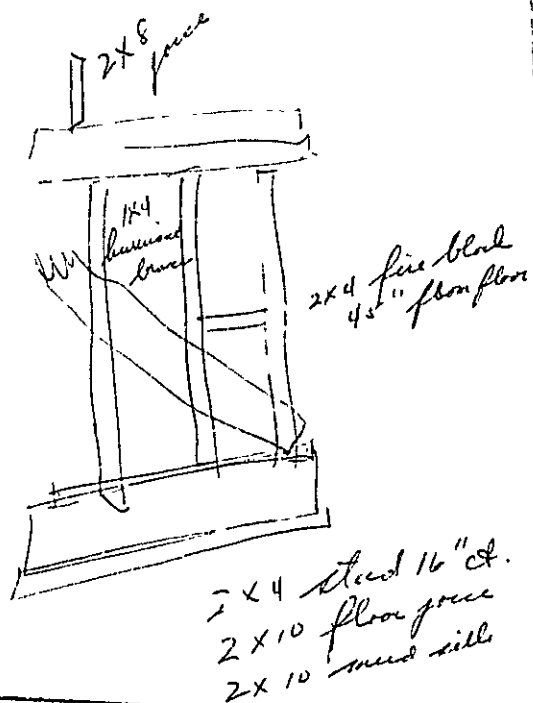 2x8 joice
1x4
hurricane
brace
2x4 fire block
45" from floor
2x4 stud 16" ct.
2x10 floor joice
2x10 mud sills